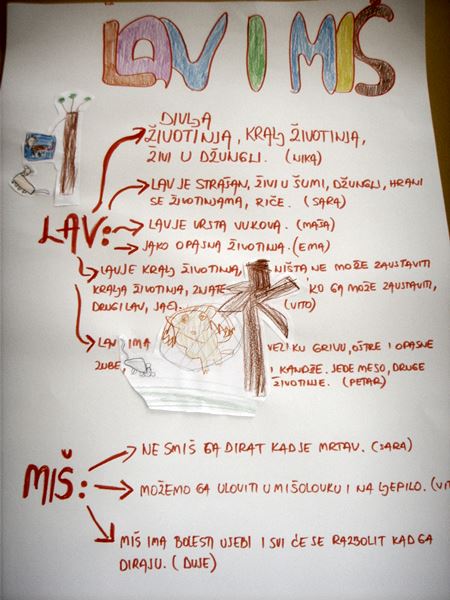 LAV I MIŠ
DIVLJA
ŽIVOTINJA, KRALJ ŽIVOTINJA,
ŽIVI U DŽUNGLI. (NIKA)
LAV JE STRAŠAN, ŽIVI U ŠUMI, DŽUNGLJI, HRANI
SE ŽIVOTINJAMA, RIČE. (SARA)
LAV:
LAV JE VRSTA VUKOVA. (MAŠA)
JAKO OPASNA ŽIVOTINJA. (EMA)
LAV JE KRALJ ŽIVOTINJA, NIŠTA NE MOŽE ZAUSTAVITI
KRALJA ŽIVOTINJA, ZNATE KO GA MOŽE ZAUSTAVITI,
DRUGI LAV, JAČI. (VITO)
LAV IMA VELIKU GRIVU, OŠTRE I OPASNE
ZUBE, I KANDŽE. JEDE MESO, DRUGE
ŽIVOTINJE. (PETAR)
MIŠ:
NE SMIŠ GA DIRAT KAD JE MRTAV. (SARA)
MOŽEMO GA ULOVITI U MIŠOLOVKU I NA LJEPILO. (VIT
MIŠ IMA BOLESTI U SEBI I SVI ĆE SE RAZBOLIT KAD GA
DIRAJU. (DUJE)